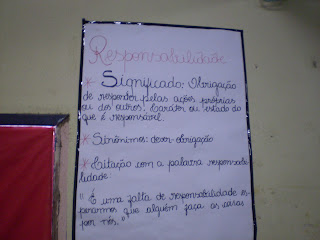 Responsabilidade
* Significado: Obrigação
de responder pelas ações próprias
ou dos outros. Caráter ou estado do
que é responsável.
* Sinônimos: dever-obrigação
* Citação com a palavra responsabi
lidade:
"É uma falta de responsabilidade es
perarmos que alguém faça as coisas
por nós."